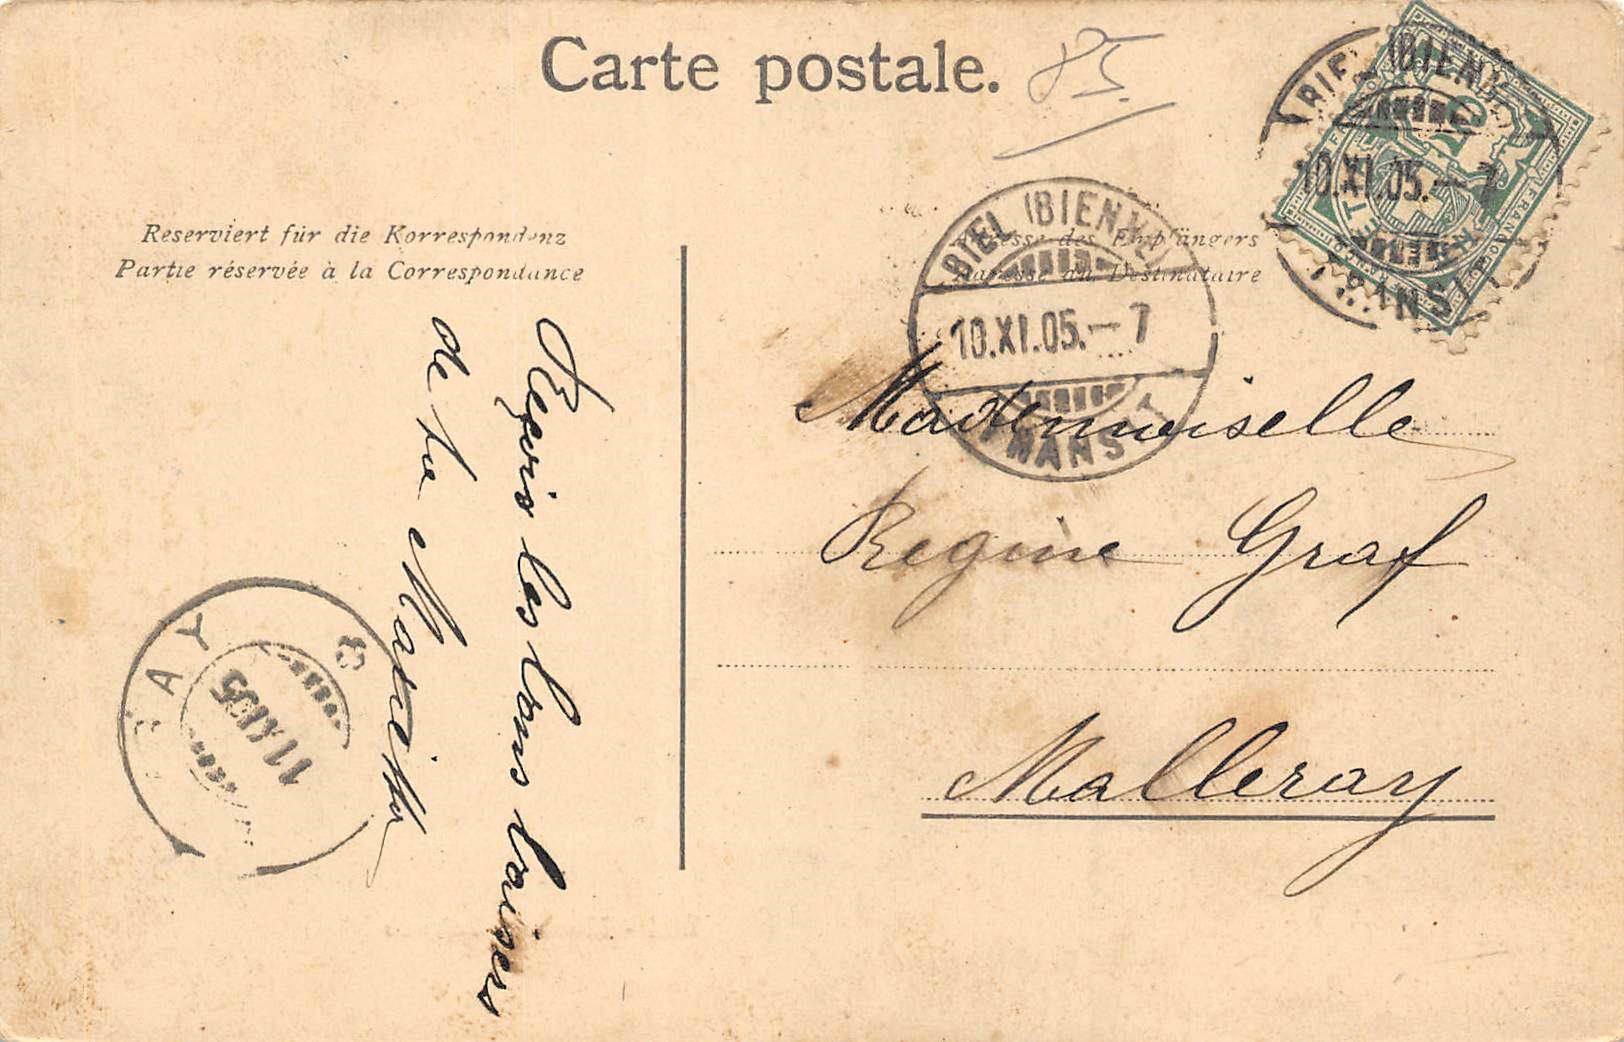 Carte postale.
85.
Reserviert für die Korrespondenz
Partie réservée à la Correspondance
Adresse des Empfängers
Adresse du Destinataire
BIEL (BIENNE)
10.XI.05.–7
TRANSIT
BIEL (BIENNE)
10.XI.05.–7
TRANSIT
FRANCO
Mademoiselle
Regine Graf
Malleray
Reçois les bons baisers
de ta
RAY
11 XI 05
8